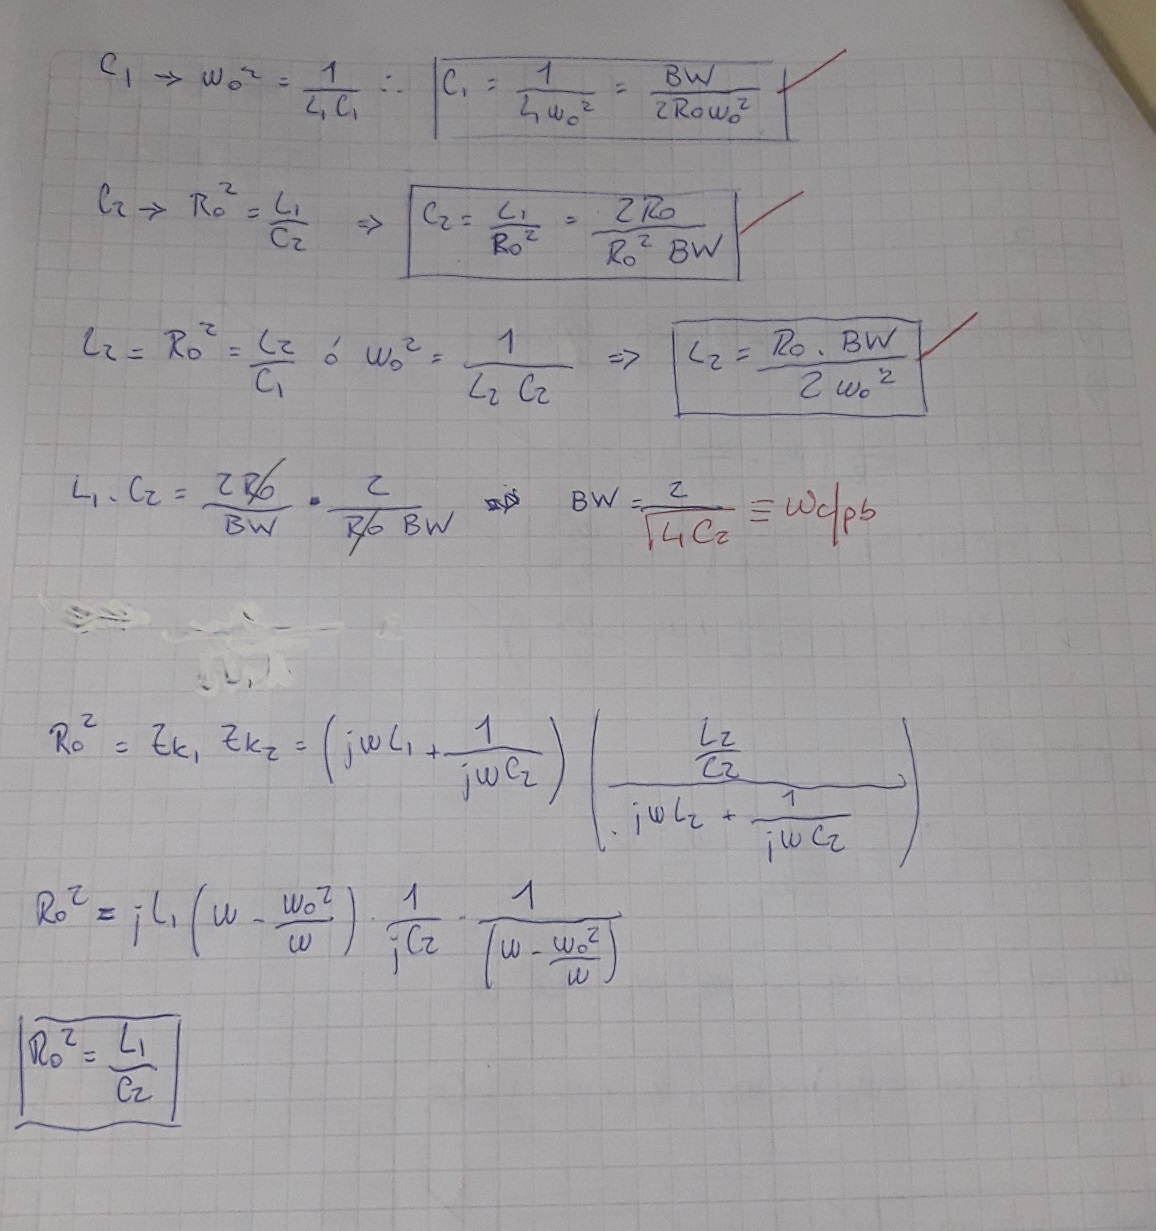 C₁ → ω₀² = 1/(L₁C₁) ∴ C₁ = 1/(L₁ω₀²) = BW/(2R₀ω₀²)
C₂ → R₀² = L₁/C₂ ⇒ C₂ = L₁/R₀² = 2R₀/(R₀² BW)
L₂ = R₀² = L₂/C₁ ó ω₀² = 1/(L₂ C₂) ⇒ L₂ = R₀ . BW/(2ω₀²)
L₁ . C₂ = 2R₀/BW . 2/(R₀ BW) ⇒ BW = 2/√(L₁C₂) ≡ ωc/pb
R₀² = Zk₁ Zk₂ = (jωL₁ + 1/(jωC₂)) ((L₂/C₂)/(jωL₂ + 1/(jωC₂)))
R₀² = jL₁(ω - ω₀²/ω) . 1/(jC₂) . 1/(ω - ω₀²/ω)
R₀² = L₁/C₂